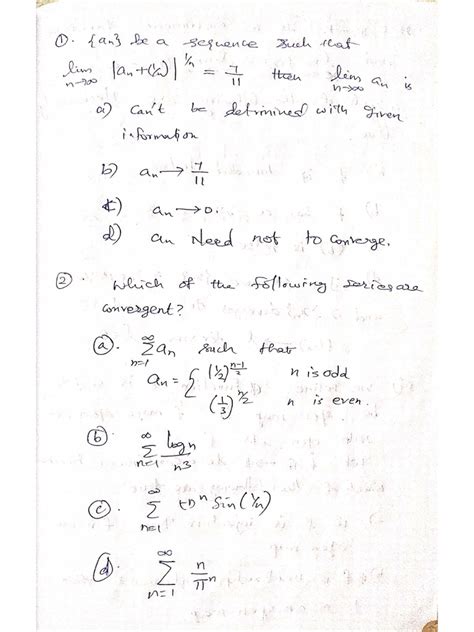 ①. {an} be a sequence such that
lim n→∞ |an+(1/n)|^1/n = 7/11 then lim n→∞ an is
a) Can't be detrimined with given
information
b) an → 7/11
c) an → 0.
d) an Need not to Converge.
②. Which of the following series are
convergent?
ⓐ. ∞ Σ n=1 an such that
an = { (1/2)^(n-1)/2 n is odd
(1/3)^n/2 n is even.
ⓑ. ∞ Σ n=1 log n / n3
ⓒ. ∞ Σ n=1 n Sin(1/n)
ⓓ. ∞ Σ n=1 n / π^n